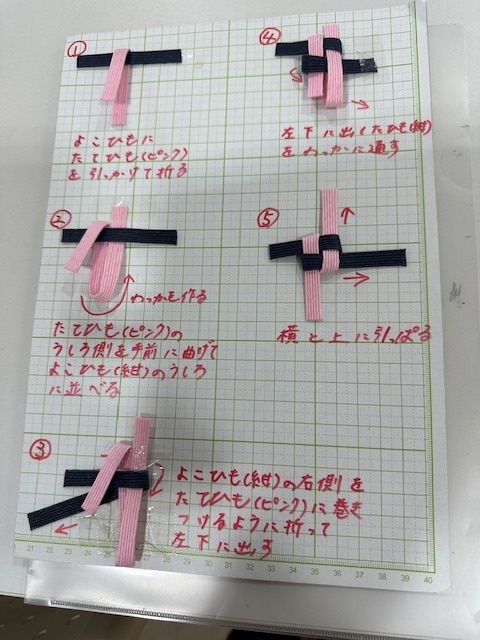 ①
よこひもに
たてひも(ピンク)
を引っかけて折る
②
わっかを作る
たてひも(ピンク)の
うしろ側を手前に曲げて
よこひも(紺)のうしろ
に並べる
③
よこひも(紺)の右側を
たてひも(ピンク)に巻き
つけるように折って
左下に出す
④
左下に出したひも(紺)
をわっかに通す
⑤
横と上に引っぱる
21 22 23 24 25 26 27 28 29 30 31 32 33 34 35 36 37 38 39 40